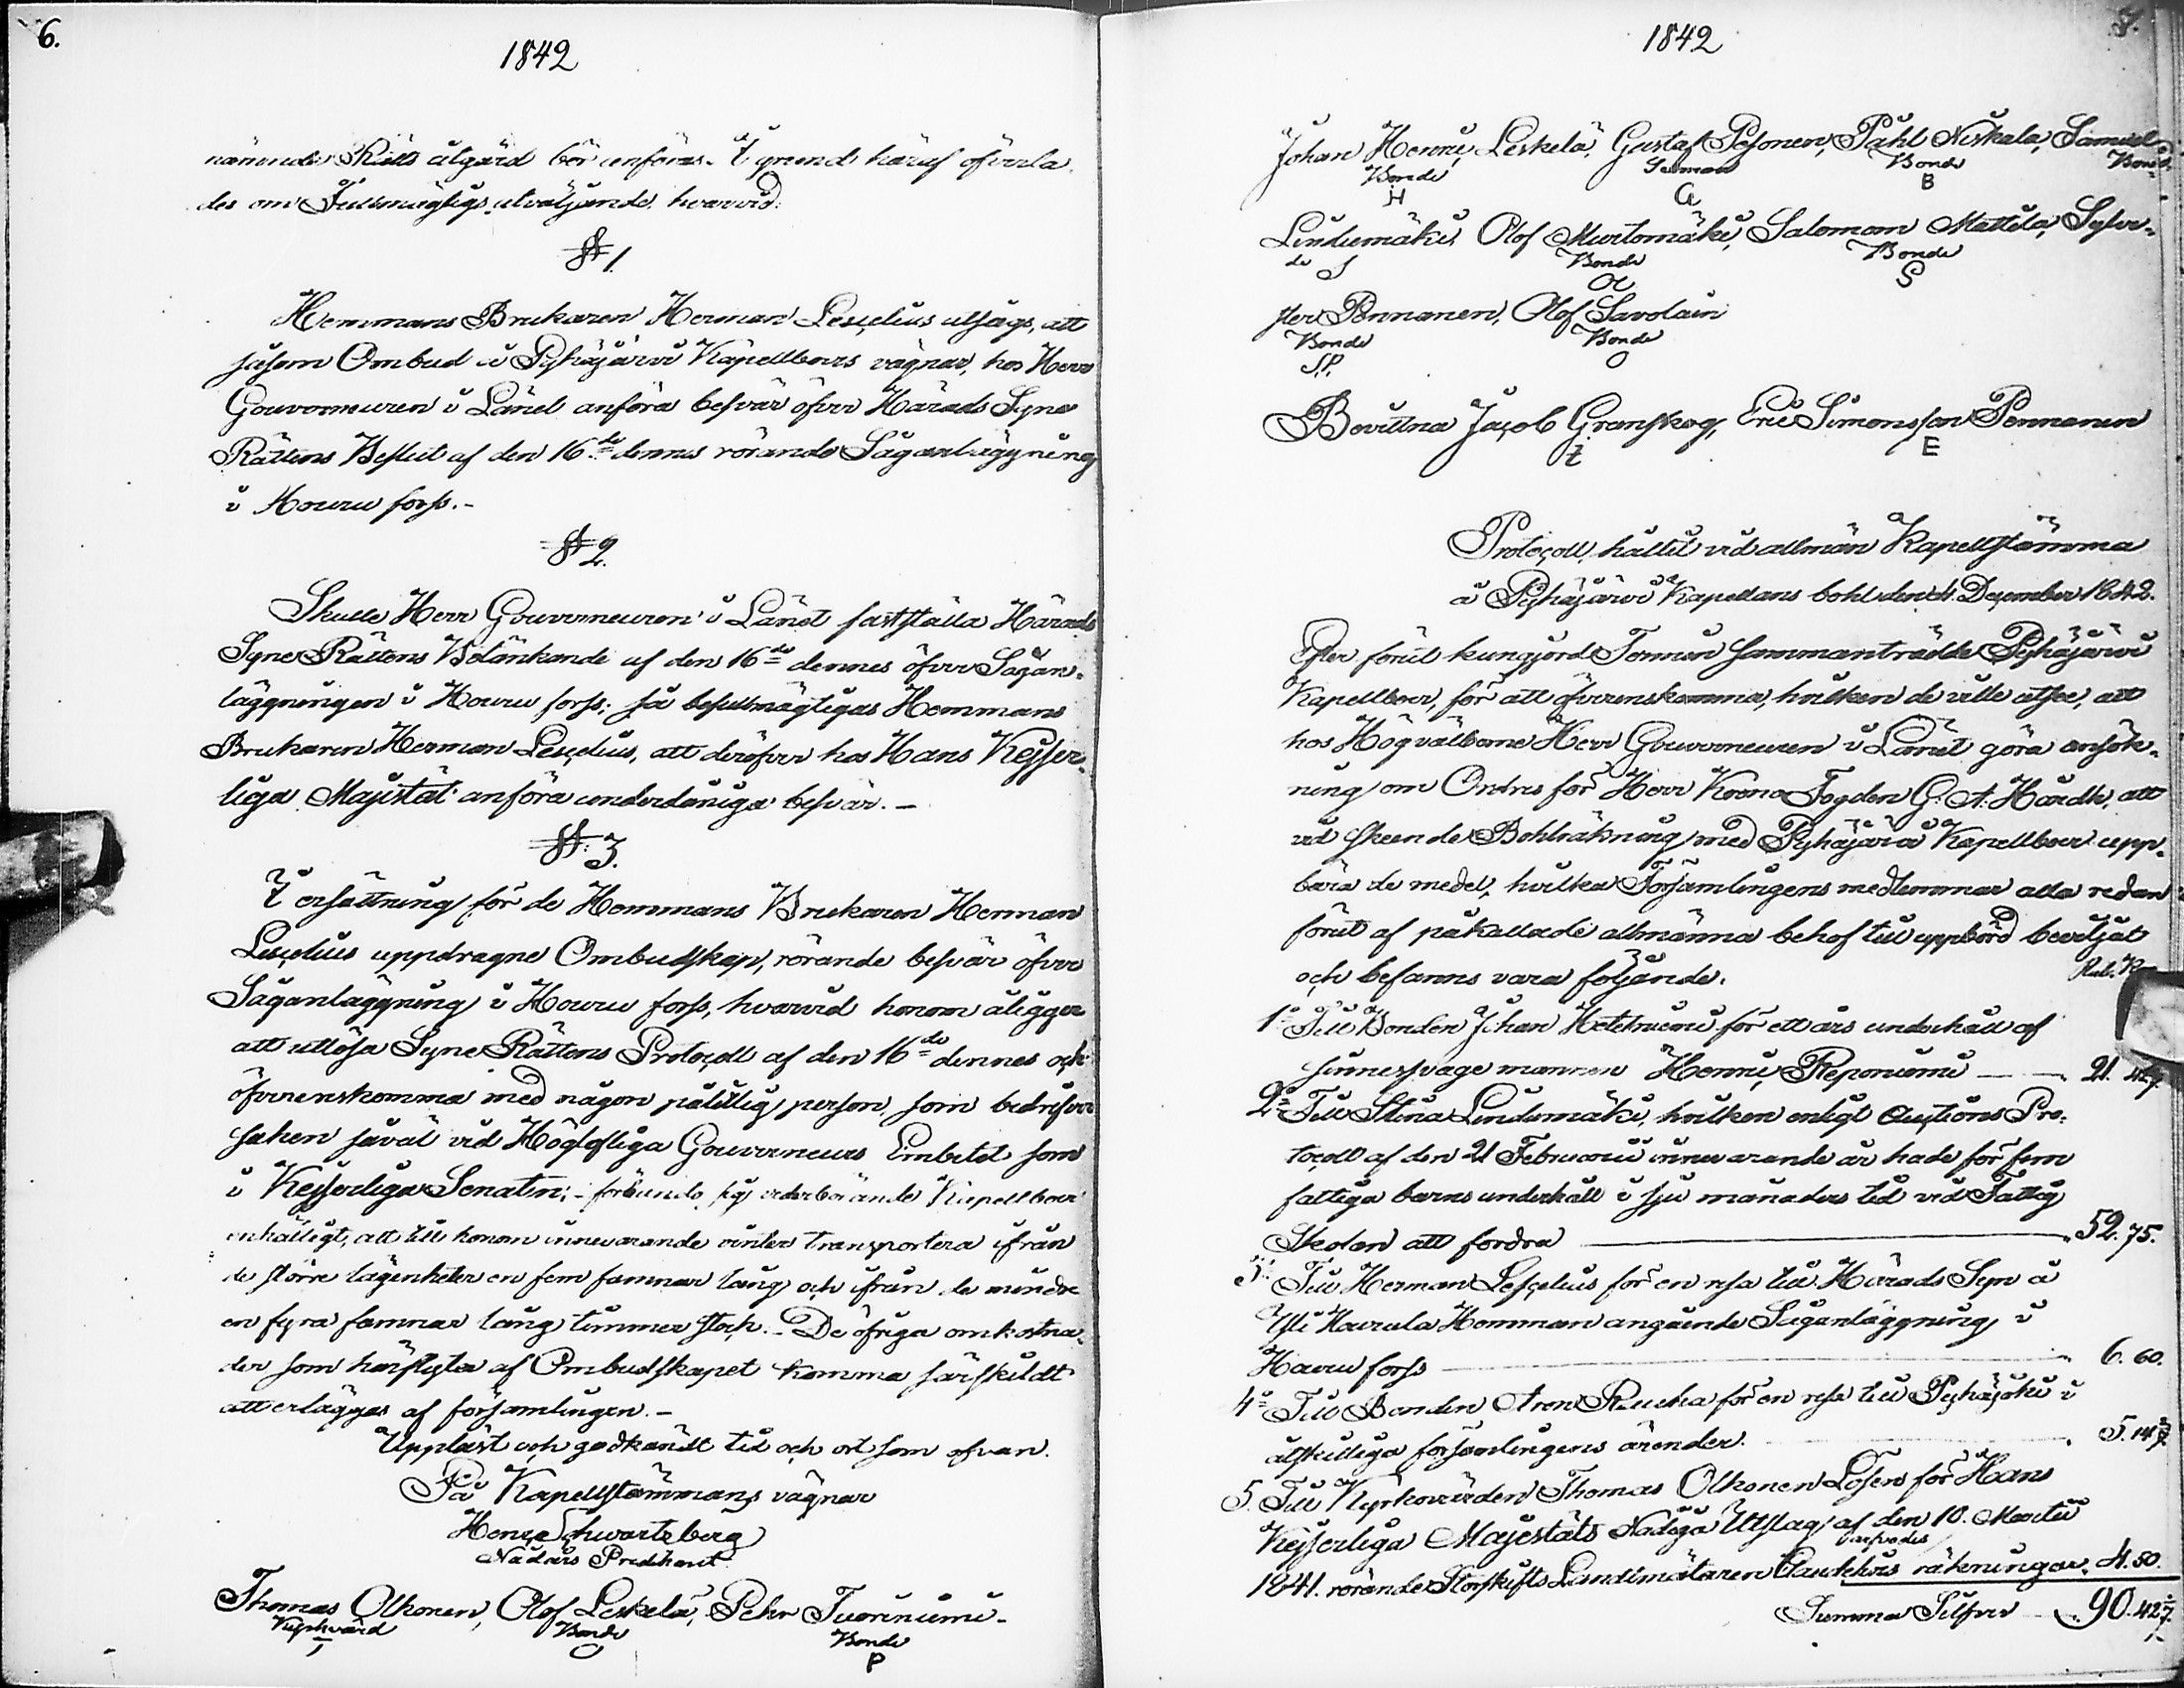 6.
1842
nämnde Rätts åtgärd bör anföras. I grund häraf öfverla-
des om Fullmägtigs utväljande, hvarvid:
§ 1.
Hemmans Brukaren Herman Lesçelius utsågs, att
såsom Ombud å Pyhäjärvi Kapellboers vägnar, hos Herr
Gouverneuren i Länet anföra besvär öfver Härads Syne
Rättens Beslut af den 16de dennes rörande Såganläggning
i Houru forss.-
§ 2.
Skulle Herr Gouverneuren i Länet fastställa Härads
Syne Rättens Betänkande af den 16de dennes öfver Sågan-
läggningen i Houru forss; så befullmägtigas Hemmans
Brukaren Herman Lesçelius, att deröfver hos Hans Kejser-
liga Majestät anföra underdåniga besvär. -
§: 3.
I ersättning för de Hemmans Brukaren Herman
Lesçelius uppdragne Ombudskap, rörande besvär öfver
Såganläggning i Houru forss, hvarvid honom åligger
att utlösa Syne Rättens Protoçoll af den 16de dennes och
öfverenskomma med någon pålitlig person, som bedrifver
saken såväl vid Höglofliga Gouverneurs Embetet som
i Kejserliga Senaten; - förbundo sig vederbörande Kapellboer
enhälligt, att till honom innevarande vinter transportera ifrån
de större lägenheter en fem famnar lång och ifrån de mindre
en fyra famnar lång timmer stock. - De öfriga omkostna-
der som härflyta af Ombudskapet komma särskildt
att erläggas af församlingen. -
Uppläst och godkändt tid och ort som ofvan.
På Kapellstämmans vägnar
Henr. Schwartzberg
Nådårs Predikant.
Thomas Olkonen, Olof Leskelä, Pehr Tuoriniemi-
Kyrkvärd Bonde Bonde
T O P
1842
7.
Johan Henric Leskelä, Gustaf Pesonen, Påhl Niskala, Samuel
Bonde Bonde Bon-
H G B
Lindemäki, Olof Murtomäki, Salomom Mattila, Sylve-
de Bonde Bonde
S O S
ster Pennanen, Olof Savolain
Bonde Bonde
S.P. O
Bevittna Jacob Granskog, Eric Simonsson Pennanen
E
Protoçoll, hållit vid allmän Kapellstämma
å Pyhäjärvi Kapellans bohl den 4. December 1842.
Efter förut kungjord Termin sammanträdde Pyhäjärvi
Kapellboer, för att öfverenskomma, hvilken de ville utse, att
hos Högvälborne Herr Gouverneuren i Länet göra ansök-
ning om Ordres för Herr Krono Fogden G. A. Hårdh, att
vid skeende Bohlräkning med Pyhäjärvi Kapellboer upp-
bära de medel, hvilka Församlingens medlemmar alla redan
förut af påkallade allmänna behof till uppbörd beviljat
och befanns vara följande.
Rub. K
1o Till Bonden Johan Hetehniemi för ett års underhåll af
sinnessvage mannen Henric Reponiemi — 21. 42
2o Till Stina Lindemäki, hvilken enligt Auctions Pro-
toçoll af den 21 Februarii innevarande år hade för fem
fattiga barns underhåll i sju månaders tid vid Fattig
Skolan att fordra — 52. 75.
3o Till Herman Lesçelius för en resa till Härads Syn å
Yli Hourula Hemman angående Såganläggning i
Houru forss — 6. 60.
4o Till Bonden Aron Raucha för en resa till Pyhäjoki i
åtskilliga församlingens ärender. — 5. 14
5. Till Kyrkovärden Thomas Olkonen Lösen för Hans
Kejserliga Majestäts Nådiga Utslag af den 10. Martii
1841. rörande Storskifts Landtmätaren arfvodes räkningar. 4. 50.
Summa Silfver — 90. 42